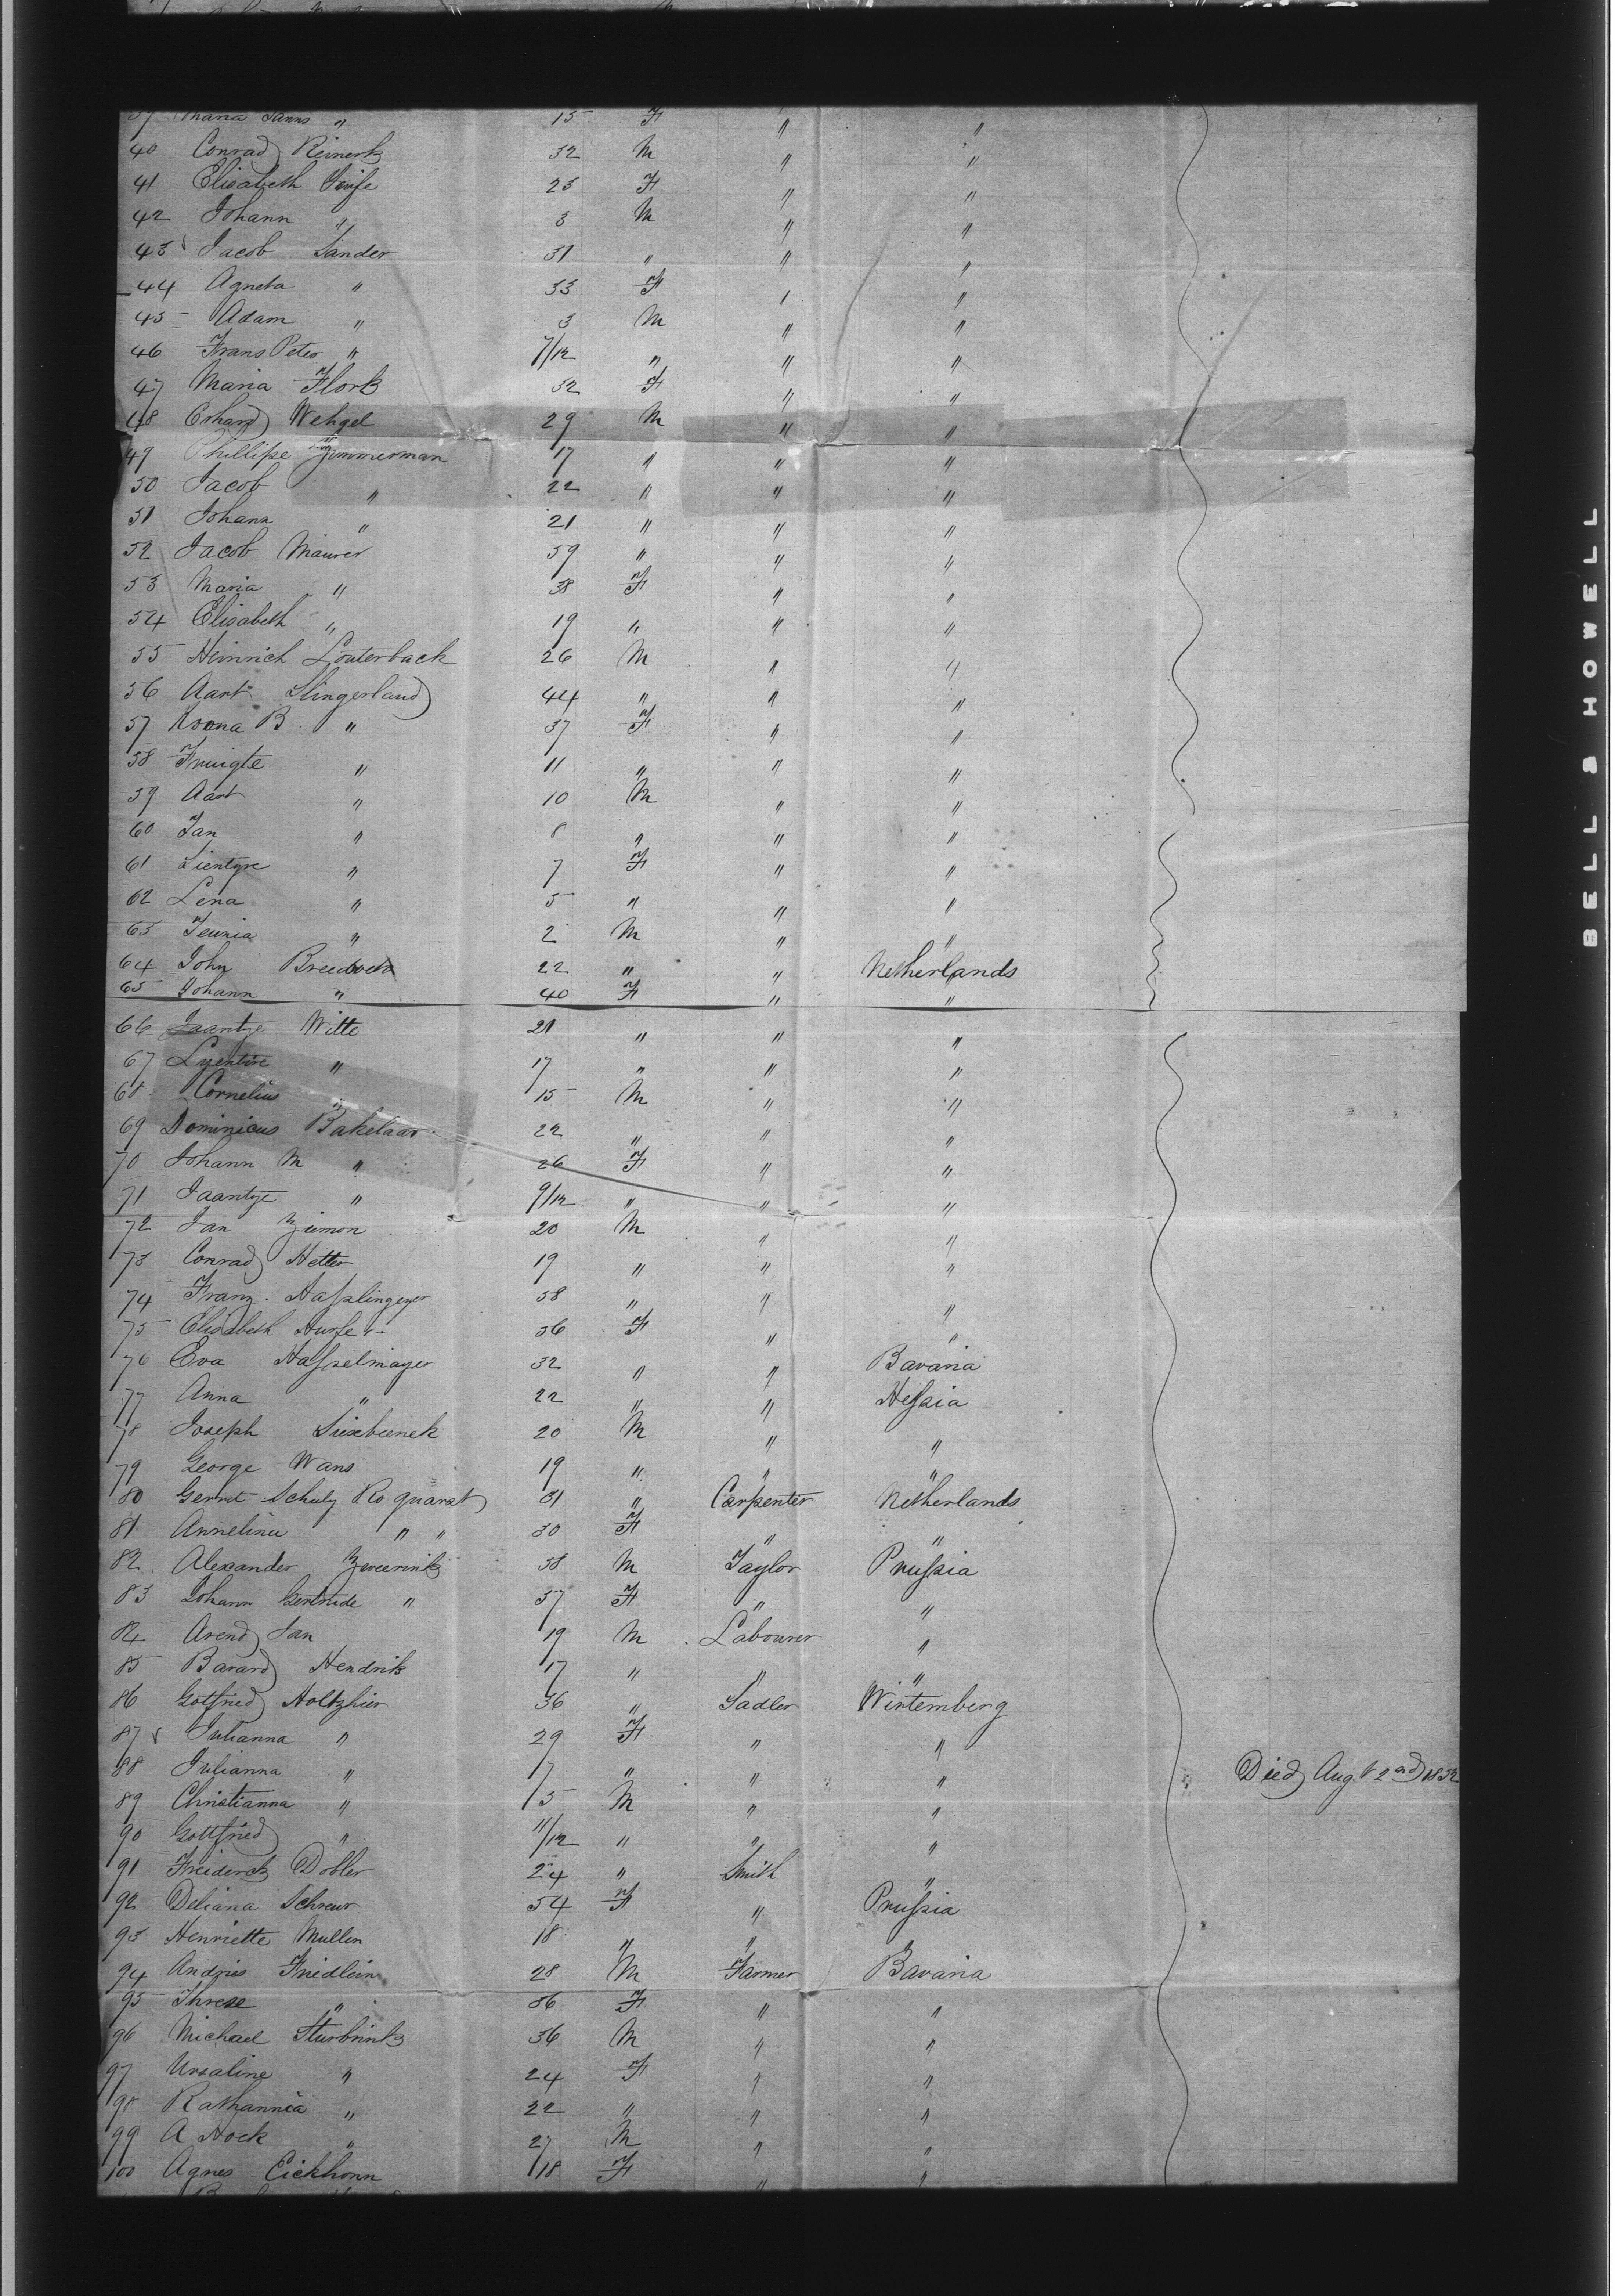 39 Maria Sanns " 15 F " "
40 Conrad Reinertz 32 M " "
41 Elisabeth Wife 23 F " "
42 Johann " 3 M " "
43 Jacob Sander 31 " " "
44 Agneta " 33 F " "
45 Adam " 3 M " "
46 Frans Peter " 7/12 " " "
47 Maria 32 F " "
48 Erhard Wehgel 29 M " "
49 Phillipe Zimmerman 17 " " "
50 Jacob " 22 " " "
51 Johann " 21 " " "
52 Jacob Maurer 59 " " "
53 Maria " 38 F " "
54 Elisabeth " 19 " " "
55 Heinrich Louterback 26 M " "
56 Aart Slingerland 44 " " "
57 B. " 37 F " "
58 " 11 " " "
59 Aart " 10 M " "
60 Jan " 8 " " "
61 Lientyre " 7 F " "
62 Lena " 5 " " "
63 Teunia " 2 M " "
64 John 22 " " Netherlands
65 Johann " 40 F " "
66 Jaantje Witte 21 " " "
67 " 17 " " "
68 Cornelius " 15 M " "
69 Dominicus Bakelaar 22 " " "
70 Johann M " 26 F " "
71 Jaantje " 9/12 " " "
72 Jan Ziemon 20 M " "
73 Conrad Hetter 19 " " "
74 Franz. 38 " " "
75 Elisabeth 36 F " "
76 Eva Hasselmayer 32 " " Bavaria
77 Anna " 22 " " Hessia
78 Joseph 20 M " "
79 George Wans 19 " " "
80 Gerrit Schuly Ro quarat 31 " Carpenter Netherlands
81 Annelina " " 30 F " "
82 Alexander Zweerink 38 M Taylor Prussia
83 Johann Gertrude " 37 F " "
84 Arend Jan 19 M Labourer "
85 Barard Hendrik 17 " " "
86 Gotfried Holtzhier 36 " Sadler Wirtemberg
87 Julianna " 29 F " "
88 Julianna " 7 " " " Died Augt 2nd 1852
89 Christianna " 5 M " "
90 Gottfried " 11/12 " " "
91 Friederck Dobler 24 " Smith "
92 Deliana Schreur 54 F " Prussia
93 Henriette Mullen 18 " "
94 Andries Friedlein 28 M Farmer Bavaria
95 Threse " 36 F " "
96 Michael Sturbrink 36 M " "
97 Ursaline " 24 F " "
98 Kathannia " 22 " " "
99 A Hock " 27 M " "
100 Agnes Eickhonn 18 F " "
BELL & HOWELL